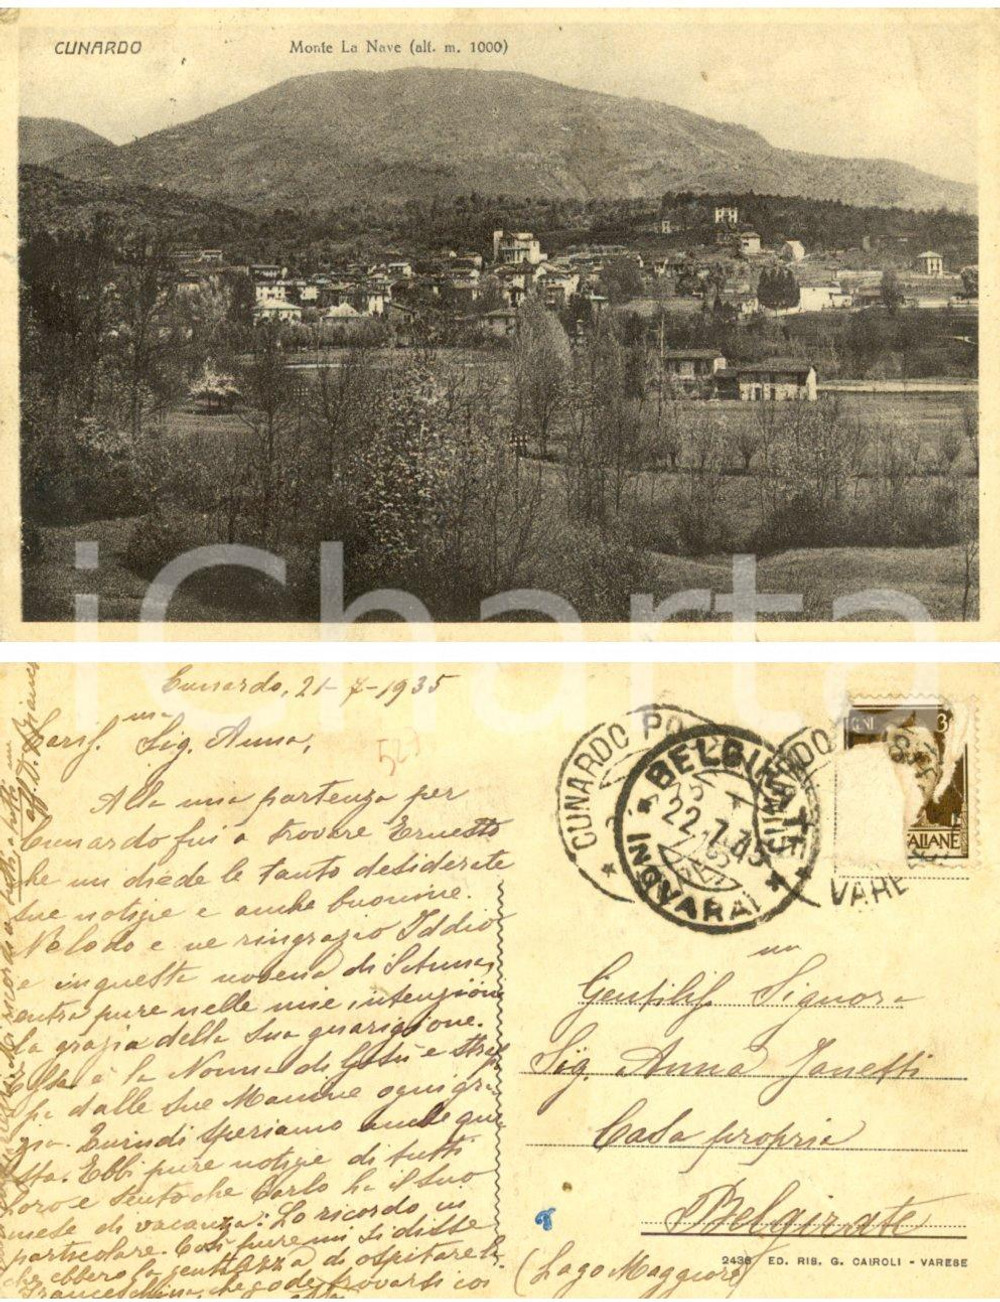 CUNARDO
Monte La Nave (alt. m. 1000)
iCharta
Cunardo, 21-7-1935
Sig. Anna,
Alla mia partenza per
Cunardo fui a trovare Ernesto
che mi diede le tanto desiderate
sue notizie e anche buonine.
Ne lodo e ne ringrazio Iddio
e in questa novena di S. Anna,
entra pure nelle mie intenzioni
la grazia della sua guarigione.
Essa è la Nonna di Gesù e
dalle sue Manine ogni gra-
zia. Quindi speriamo anche que-
sta. Ebbi pure notizie di tutti
loro e sento che Carlo ha il suo
mese di vacanza: Lo ricordo in
particolare. Così pure mi si disse
che ebbero la gentilezza di ospitare la
Franceschina, che gode trovarsi coi
527
CUNARDO
BELGIRATE
22.7.35
(NOVARA)
VARE
ALIANE
Gentil. Signora
Sig. Anna Zanetti
Casa propria
Belgirate
(Lago Maggiore)
2438 ED. RIS. G. CAIROLI - VARESE